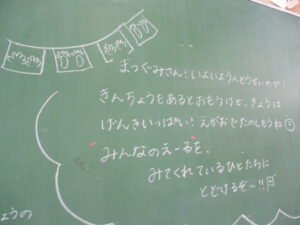 まつぐみさん！いよいよ
きんちょうもあるとおもうけど、きょうは
げんきいっぱい！えがおでたのしもうね
みんなのえーるを、
みてくれているひとたちに
とどけるぞ〜!!
ょうの